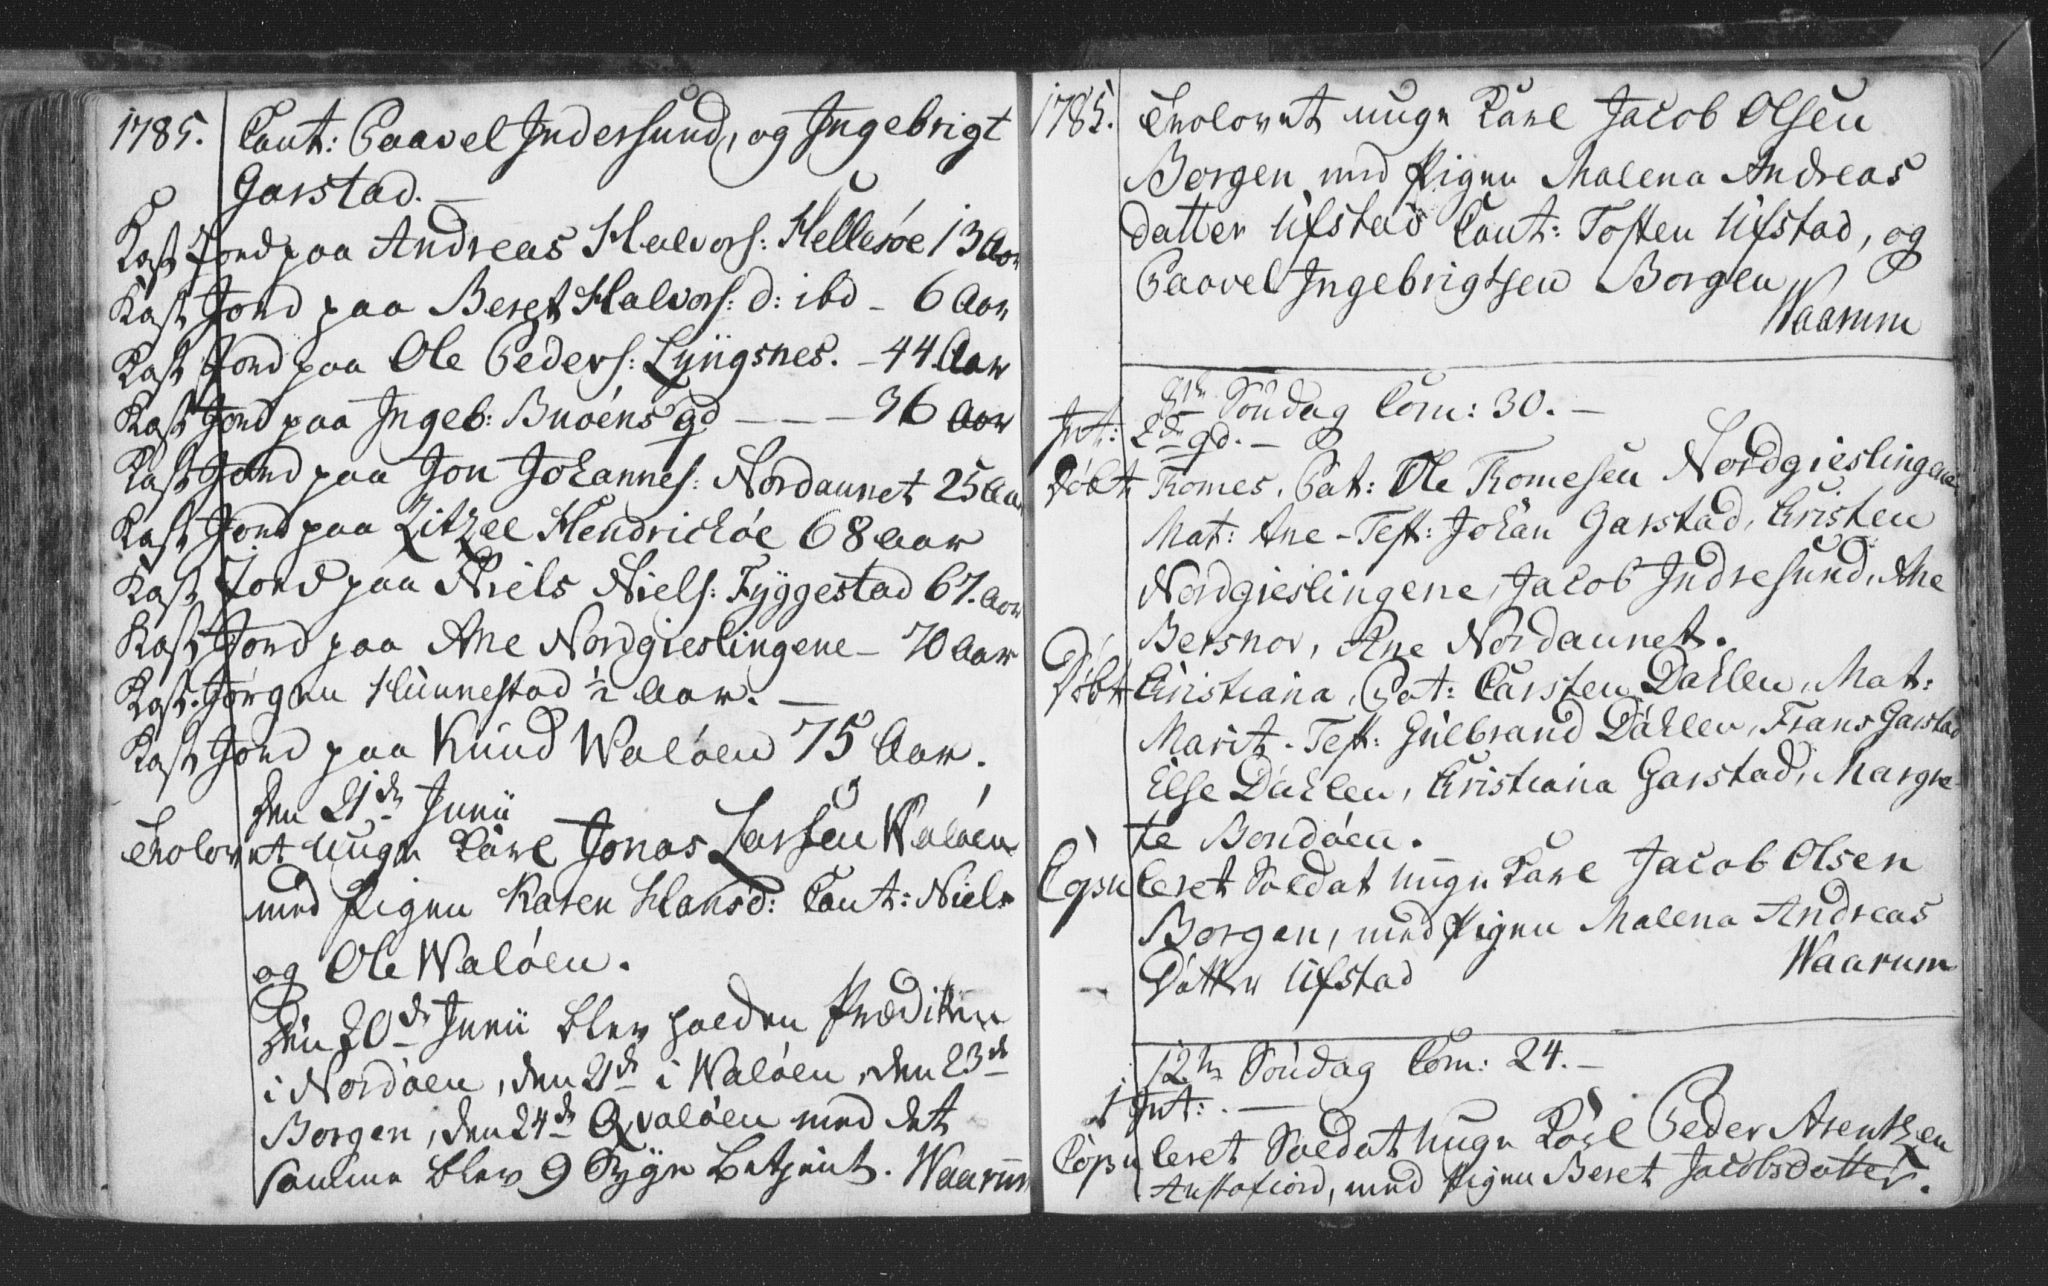 1785. Caut: Paavel Indersund, og Ingebrigt
Garstad. —
Kast Jord paa Andreas Halvors: Hellesöe 13 Aar
Kast Jord paa Beret Halvors: d: ibd – 6 Aar
Kast Jord paa Ole Peders: Lyngsnes. – 44 Aar
Kast Jord paa Ingeb: Buöens gd — — 36 Aar
Kast Jord paa Jon Johannes: Nordaunet 25 Aar
Kast Jord paa Zitzel Hendrichöe 68 Aar
Kast Jord paa Niels Niels: Fyggestad 67. Aar
Kast Jord paa Ane Nordgieslingene – 70 Aar
Kast. Jörgen Hunnestad ½ Aar. —
Kast Jord paa Knud Walöen 75 Aar.
den 21de Junii
Trolovet unge Karl Jonas Larsen Walöen
med Pigen Karen Hansd: Caut: Niels
og Ole Walöen.
Den 20de Junii blev holden Prædiken
i Nordöen, den 21de i Walöen, den 23de
Borgen, den 24de Qvalöen med det
samme blev 9 Syge betjent. Waarum
1785. Trolovet unge Karl Jacob Olsen
Borgen med Pigen Malena Andreas
datter Ufstad Caut: Tosten Ufstad, og
Paavel Ingebrigtsen Borgen
Waarum
Söndag Com: 30. —
Int: 2de gd. —
Döbt Tomes, Pat: Ole Tomesen Nordgieslingene
Mat: Ane – Test: Johan Garstad, Cristen
Nordgieslingene, Jacob Indresund, Ane
Bersnov, Ane Nordaunet.
Döbt Cristiana, Pat: Carsten Dahlen, Mat:
Marit. Test: Gulbrand Dahlen, Frans Garstad
Else Dahlen, Cristiana Garstad, Margre
te Bondöen.
Copuleret Soldat unge Karl Jacob Olsen
Borgen, med Pigen Malena Andreas
Datter Ufstad Waarum
12te Söndag Com: 24. —
1 Int: . —
Copuleret Soldat unge Karl Peder Arentzen
Austafiord, med Pigen Beret Jacobsdatter.